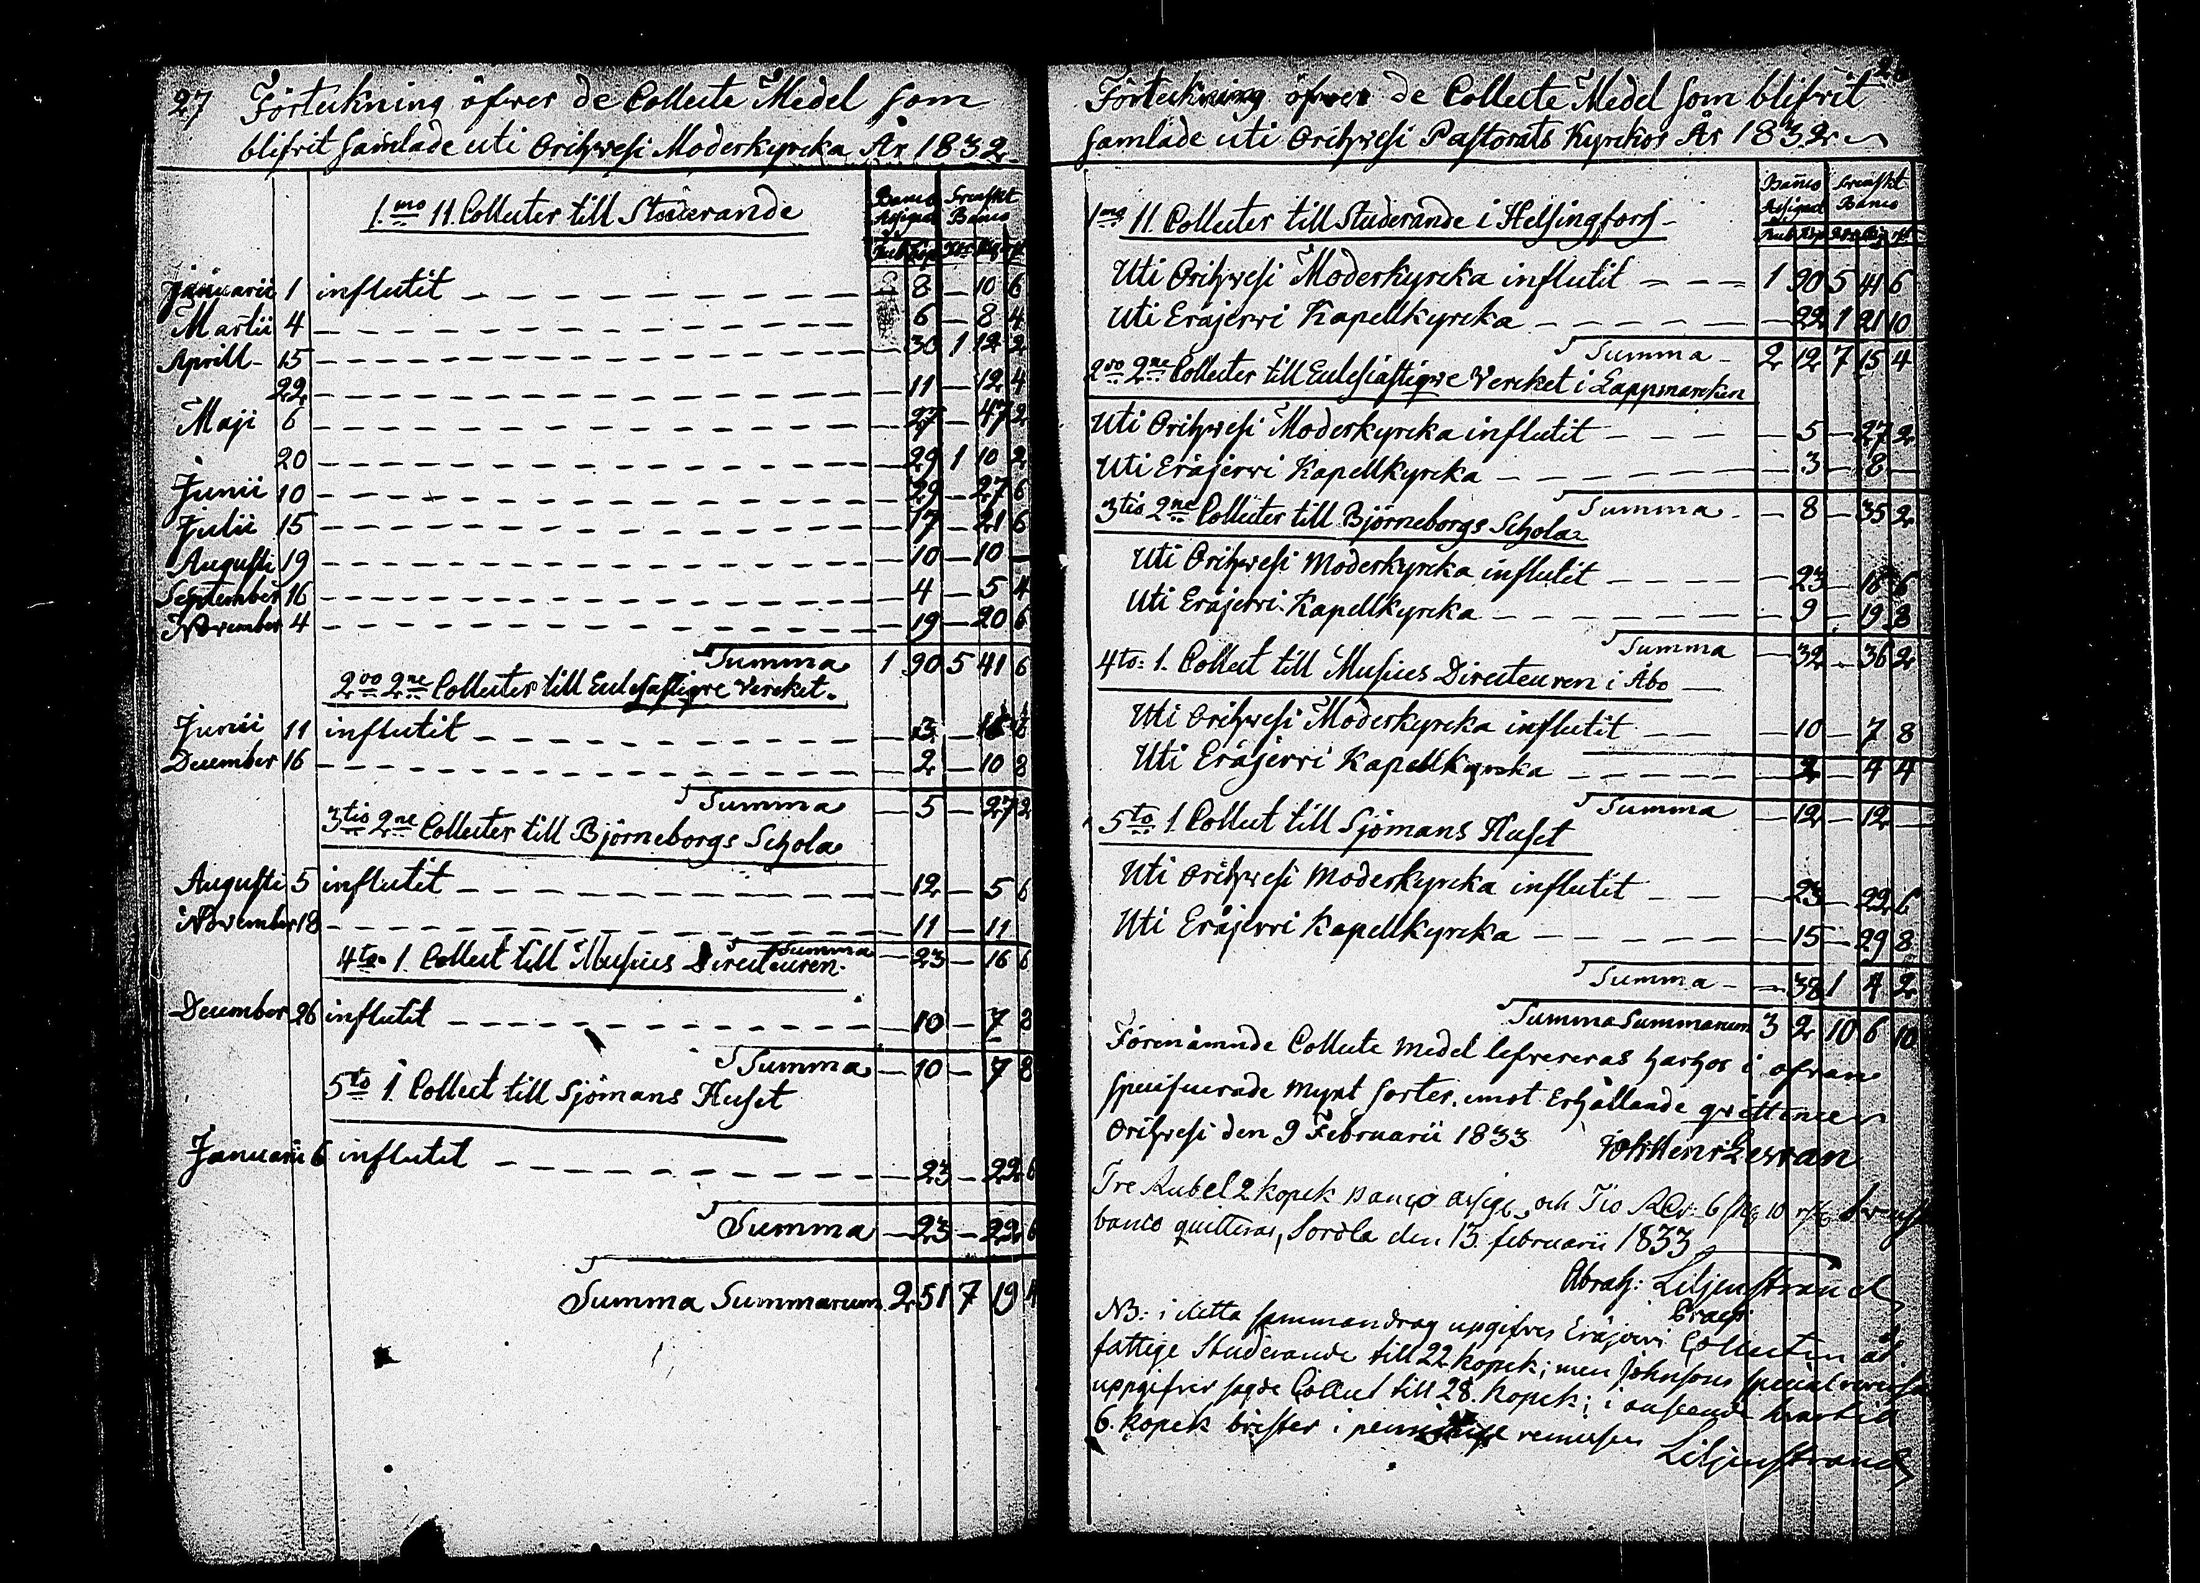 27 Förteckning öfwer de Collecte Medel som
blifvit samlade uti Orihwesi Moderkyrcka År 1832
1.mo 11. Collecter till Studerande
Banco Assignat Svenskt Banco
Rub Kop Rdr sk rst
Januarii 1 influtit – 8 – 10 6
Martii 4 – 6 – 8 4
Aprill 15 – 30 1 12 2
22 – 11 – 12 4
Maji 6 – 27 – 47 2
20 – 29 1 10 2
Junii 10 – 29 – 27 6
Julii 15 – 17 – 21 6
Augusti 19 – 10 – 10 –
September 16 – 4 – 5 4
November 4 – 19 – 20 6
Summa 1 90 5 41 6
2do 2ne Collecter till Eclesiastiqve Vercket.
Junii 11 influtit – 3 – 16 6
December 16 – 2 – 10 8
Summa – 5 – 27 2
3tio 2ne Collecter till Björneborgs Schola
Augusti 5 influtit – 12 – 5 6
November 18 – 11 – 11
Summa – 23 – 16 6
4to 1. Collect till Musices Directeuren.
December 26 influtit – 10 – 7 8
Summa – 10 – 7 8
5to 1 Collect till Sjömans Huset
Januarii 6 influtit – 23 – 22 6
Summa – 23 – 22 6
Summa Summarum 2 51 7 19 4
Förteckning öfwer de Collecte Medel som blifvit
samlade uti Orihwesi Pastorats Kyrckor År 1832
Banco Assignat Svenskt Banco
Rub Kop Rdr sk rst
1mo 11. Collecter till Studerande i Helsingfors
Uti Orihwesi Moderkyrcka influtit 1 90 5 41 6
Uti Eräjerwi Kapellkyrcka – 22 1 21 10
Summa 2 12 7 15 4
2do 2ne Collecter till Eclesiastiqve Vercket i Lappmarcken
Uti Orihwesi Moderkyrcka influtit – 5 – 27 2
Uti Eräjerwi Kapellkyrcka – 3 – 8 –
Summa – 8 – 35 2
3tio 2ne Collecter till Björneborgs Schola
Uti Orihwesi Moderkyrcka influtit – 23 – 16 6
Uti Eräjerwi Kapellkyrcka – 9 – 19 8
Summa – 32 – 36 2
4to: 1. Collect till Musices Directeuren i Åbo
Uti Orihwesi Moderkyrcka influtit – 10 – 7 8
Uti Eräjerwi Kapellkyrcka – 2 – 4 4
Summa – 12 – 12 –
5to 1 Collect till Sjömans Huset
Uti Orihwesi Moderkyrcka influtit – 23 – 22 6
Uti Eräjerwi Kapellkyrcka – 15 – 29 8
Summa – 38 1 4 2
Summa Summarum 3 2 10 6 10
Förenämnde Collecte medel lefvereras härhos i ofvan
specificerade mynt sorter, emot Erhållande qvittence
Orihwesi den 9 Februarii 1833 Joh Henr Gevran
Tre Rubel 2 kopek Banco assign. och Tio Rdr 6 sk 10 rst Svenskt
banco quitteras, Sordla den 13 februarii 1833
Abrah: Liljenstrand
NB: i detta sammandrag upgifves Eräjerwi Collecten åt
fattige Studerande till 22 kopek; men Johnsons special
uppgifver sagde Collect till 28. kopek; i anseende hvartill
6. kopek brister i
Liljenstrand